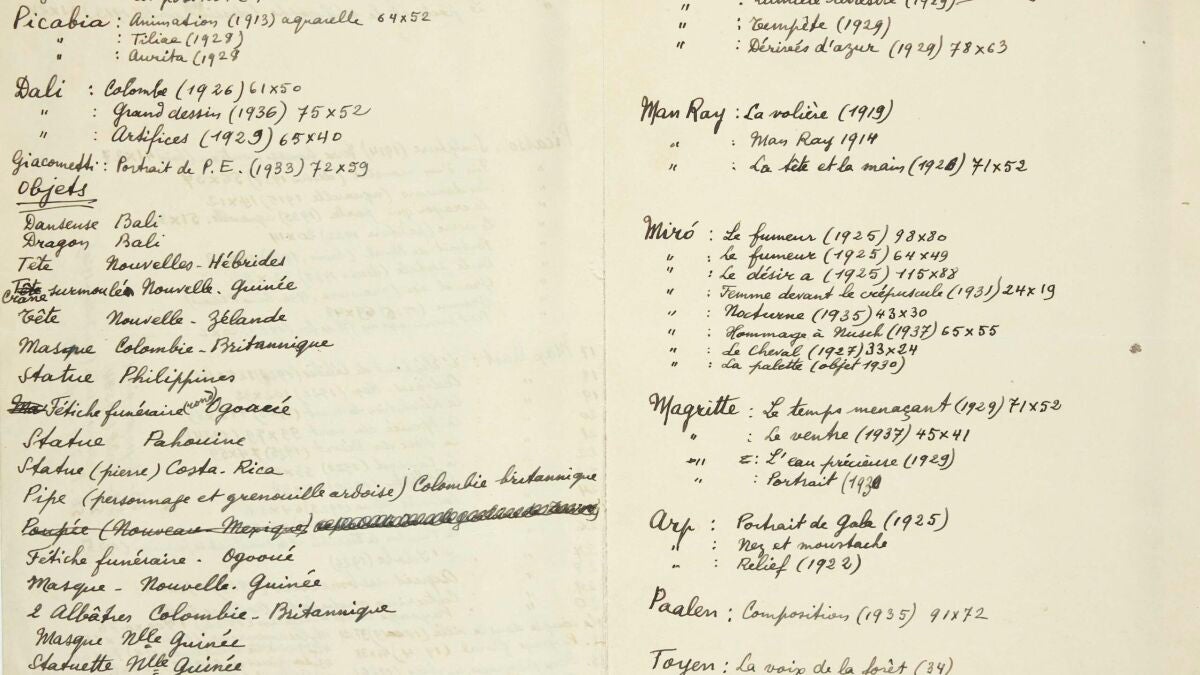 Picabia : Animation (1913) aquarelle 64x52
" : Tiliae (1929)
" : Aurita (1929
Dali : Colombe (1926) 61x50
" : Grand dessin (1936) 75x52
" : Artifices (1929) 65x40
Giacometti : Portrait de P.E. (1933) 72x59
Objets
Danseuse Bali
Dragon Bali
Tête Nouvelles-Hébrides
Crâne surmoulé Nouvelle-Guinée
Tête Nouvelle-Zélande
Masque Colombie-Britannique
Statue Philippines
Fétiche funéraire (rond) Ogooué
Statue Pahouine
Statue (pierre) Costa-Rica
Pipe (personnage et grenouille ardoise) Colombie britannique
Poupée (Nouveau-Mexique)
Fétiche funéraire - Ogooué
Masque - Nouvelle-Guinée
2 Albâtres Colombie-Britannique
Masque Nlle Guinée
Statuette Nlle Guinée
" : Tempête (1929)
" : Dérivés d'azur (1929) 78x63
Man Ray : La volière (1919)
" : Man Ray 1914
" : La tête et la main (1926) 71x52
Miró : Le fumeur (1925) 98x80
" : Le fumeur (1925) 64x49
" : Le désir a (1925) 115x88
" : Femme devant le crépuscule (1931) 24x19
" : Nocturne (1935) 43x30
" : Hommage à Nusch (1937) 65x55
" : Le Cheval (1927) 33x24
" : La palette (objet 1930)
Magritte : Le temps menaçant (1929) 71x52
" : Le ventre (1937) 45x41
" : L'eau précieuse (1929)
" : Portrait (1930
Arp : Portrait de Gala (1925)
" : Nez et moustache
" : Relief (1922)
Paalen : Composition (1935) 91x72
Toyen : La voix de la forêt (34)